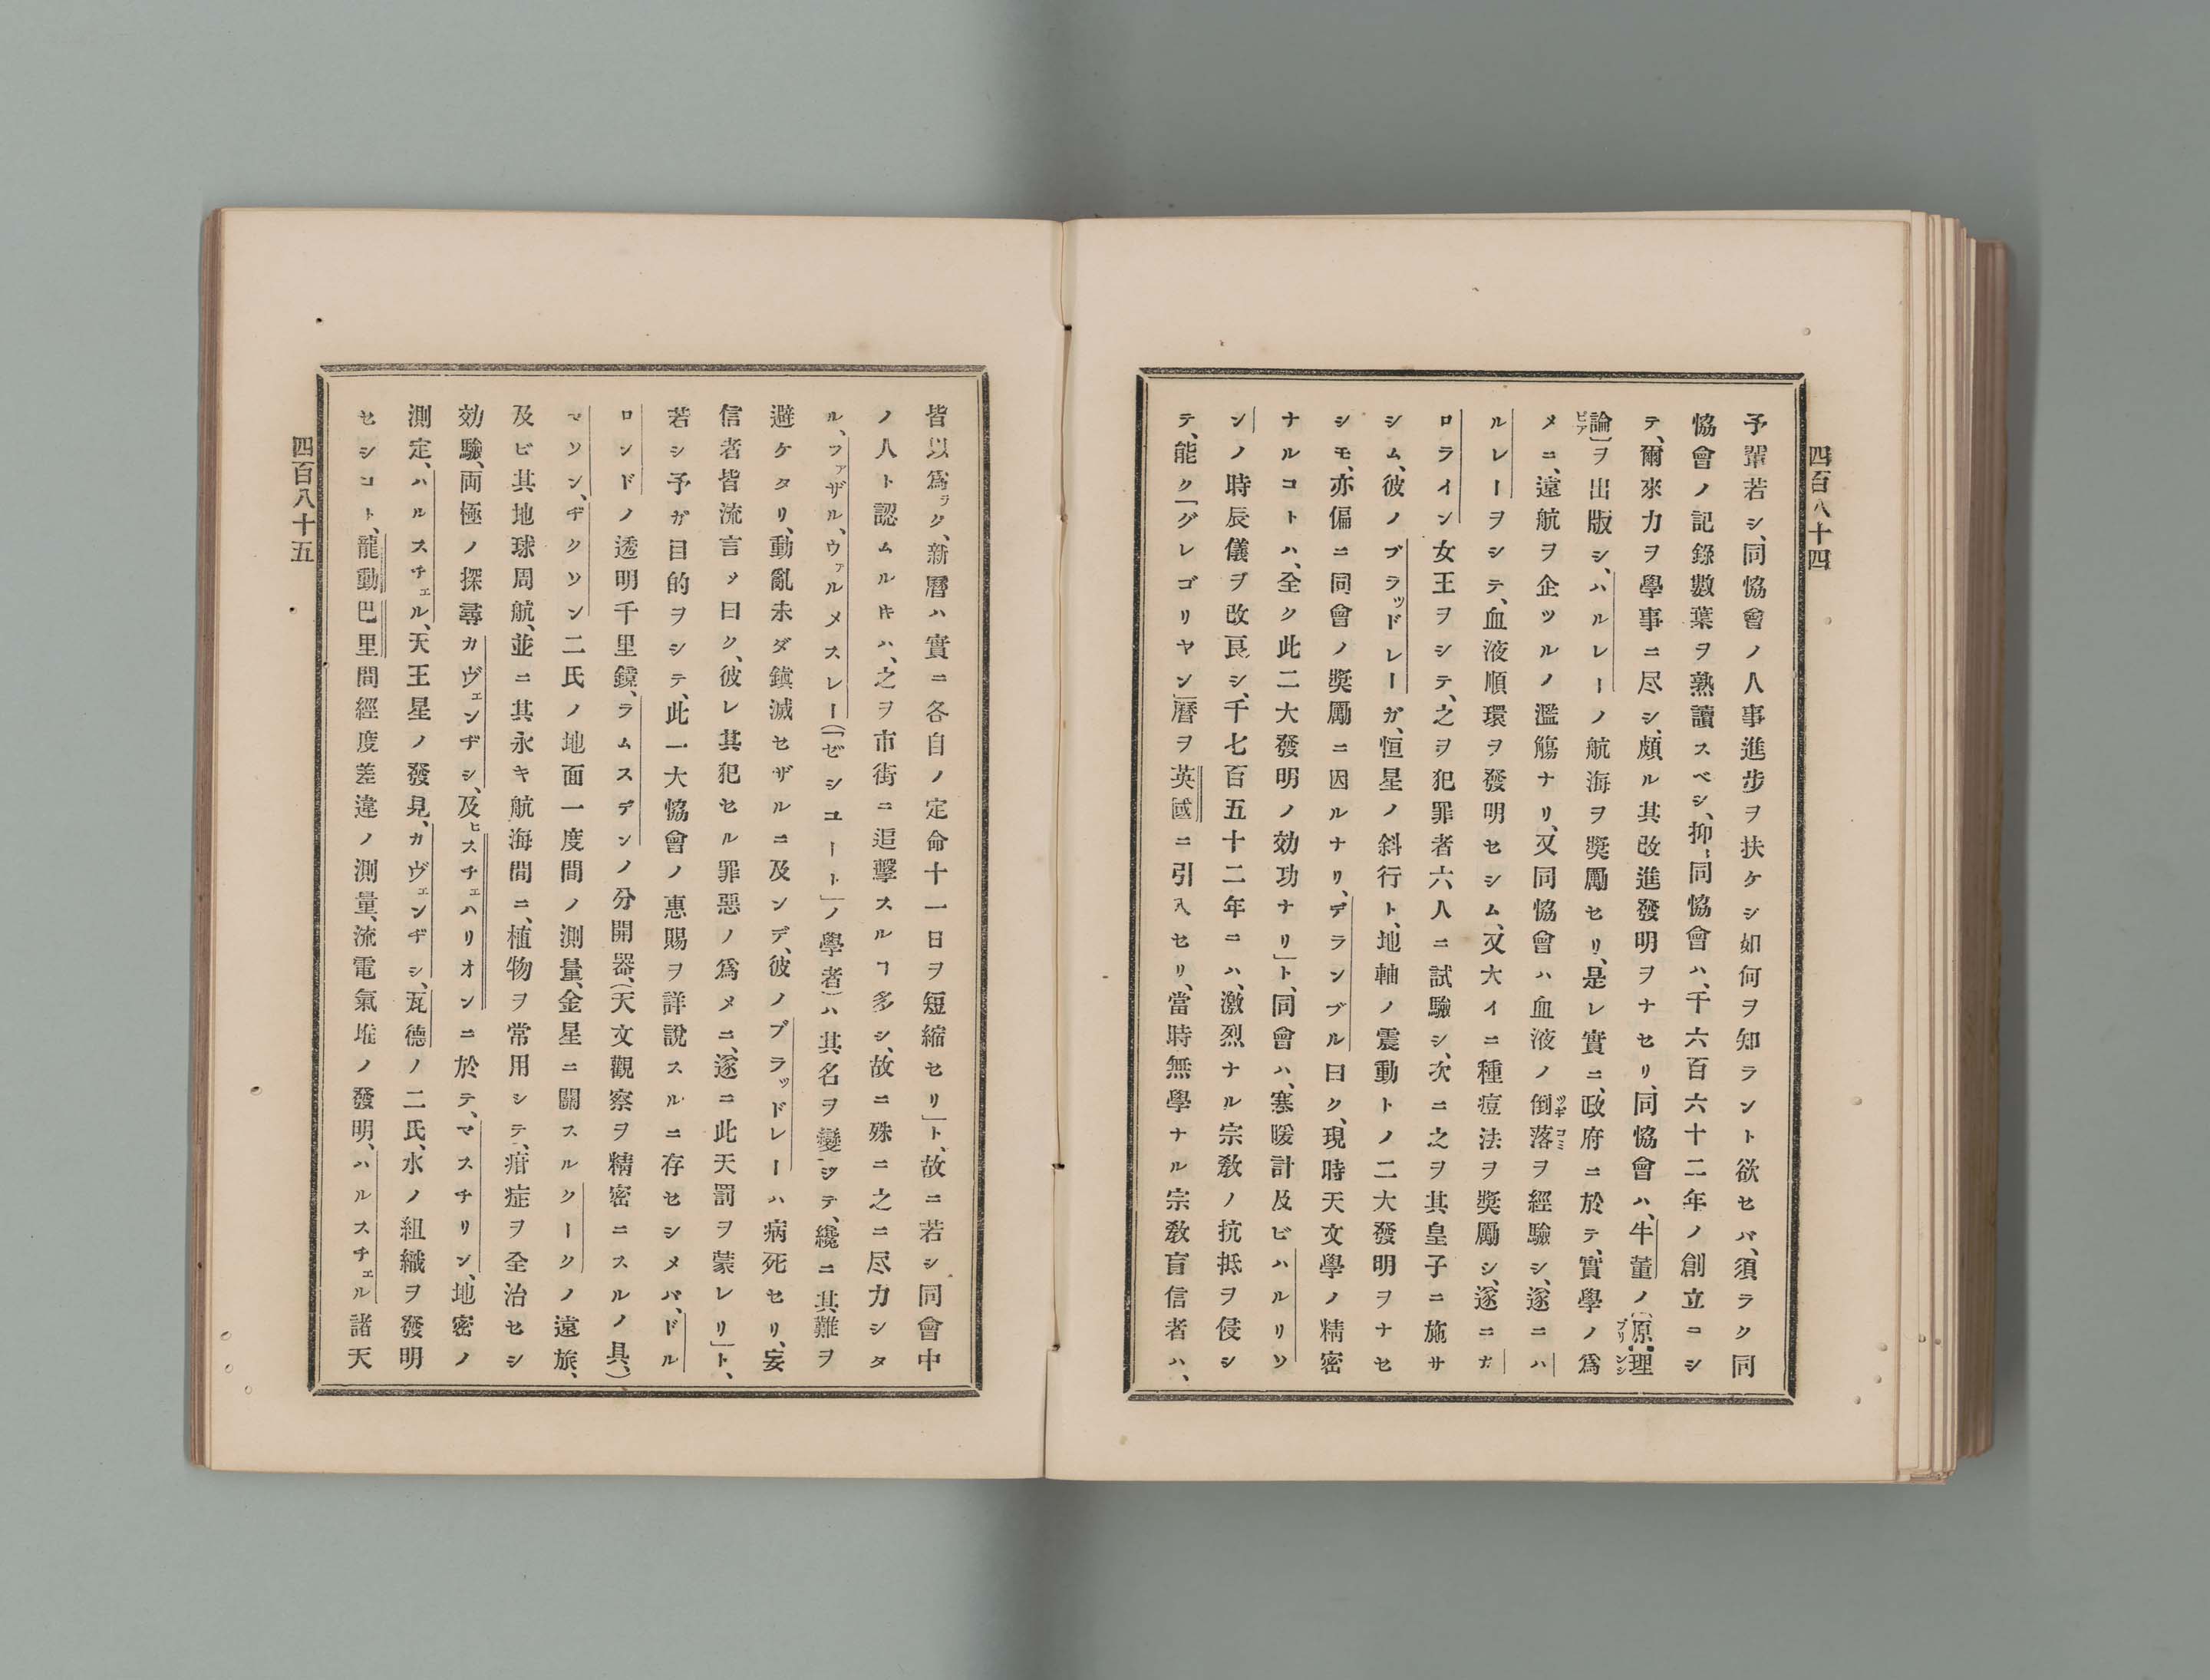 四百八十四
予輩若シ、同恊會ノ人事進步ヲ扶ケシ如何ヲ知ラント欲セバ、須ラク同
恊會ノ記錄數葉ヲ熟讀スベシ、抑〻同恊會ハ、千六百六十二年ノ創立ニシ
テ、爾來力ヲ學事ニ尽シ、頗ル其改進發明ヲナセリ、同恊會ハ、牛董ノ(原理
論)ヲ出版シ、ハルレーノ航海ヲ奬勵セリ、是レ實ニ、政府ニ於テ、實學ノ爲
メニ、遠航ヲ企ツルノ濫觴ナリ、又同恊會ハ血液ノ倒落ヲ經驗シ、遂ニハ
ルレーヲシテ、血液順環ヲ發明セシム、又大イニ種痘法ヲ奬勵シ、遂ニカ
ロライン女王ヲシテ、之ヲ犯罪者六人ニ試驗シ、次ニ之ヲ其皇子ニ施サ
シム、彼ノブラッドレーガ、恒星ノ斜行ト、地軸ノ震動トノ二大發明ヲナセ
シモ、亦偏ニ同會ノ奬勵ニ因ルナリ、デランブル曰ク、現時天文學ノ精密
ナルコトハ、全ク此二大發明ノ効功ナリ」ト、同會ハ、寒暖計及ビハルリソ
ンノ時辰儀ヲ改良シ、千七百五十二年ニハ、激烈ナル宗敎ノ抗抵ヲ侵シ
テ、能ク「グレゴリヤン」曆ヲ英國ニ引入セリ、當時無學ナル宗敎盲信者ハ、
皆以爲ラク、新曆ハ實ニ各自ノ定命十一日ヲ短縮セリ」ト、故ニ若シ同會中
ノ人ト認ムルキハ、之ヲ市街ニ追擊スルヿ多シ、故ニ殊ニ之ニ尽力シタ
ル、ファザル、ウァルメスレー(「ゼシユート」ノ學者)ハ其名ヲ變ジテ、纔ニ其難ヲ
避ケタリ、動亂未ダ鎭滅セザルニ及ンデ、彼ノブラッドレーハ病死セリ、妄
信者皆流言ッ曰ク、彼レ其犯セル罪惡ノ爲メニ、遂ニ此天罰ヲ蒙レリ」ト、
若シ予ガ目的ヲシテ、此一大恊會ノ惠賜ヲ詳說スルニ存セシメバ、ドル
ロンドノ透明千里鏡、ラムスデンノ分開器、(天文觀察ヲ精密ニスルノ具、)
マソン、ヂクソン二氏ノ地面一度間ノ測量、金星ニ關スルクークノ遠旅、
及ビ其地球周航、並ニ其永キ航海間ニ、植物ヲ常用シテ、疳症ヲ全治セシ
効驗、両極ノ探尋カヴェンヂシ、及ヒスチェハリオンニ於テ、マスチリン、地密ノ
測定、ハルスチェル、天王星ノ發見、カヴェンヂシ、瓦德ノ二氏、水ノ組織ヲ發明
セシコト、龍動巴里間經度差違ノ測量、流電氣堆ノ發明、ハルスチェル諸天
四百八十五